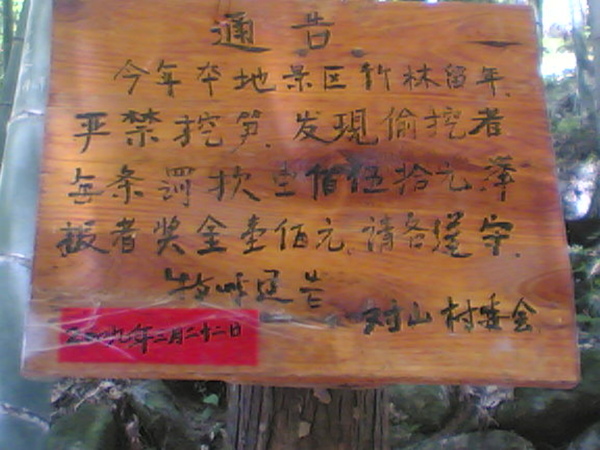 通告
今年本地景区竹林留年、
严禁挖笋、发现偷挖者
每条罚款壹佰伍拾元 举
报者奖金壹佰元、请各遵守、
特呼通告
对山村委会
二00九年二月二十二日